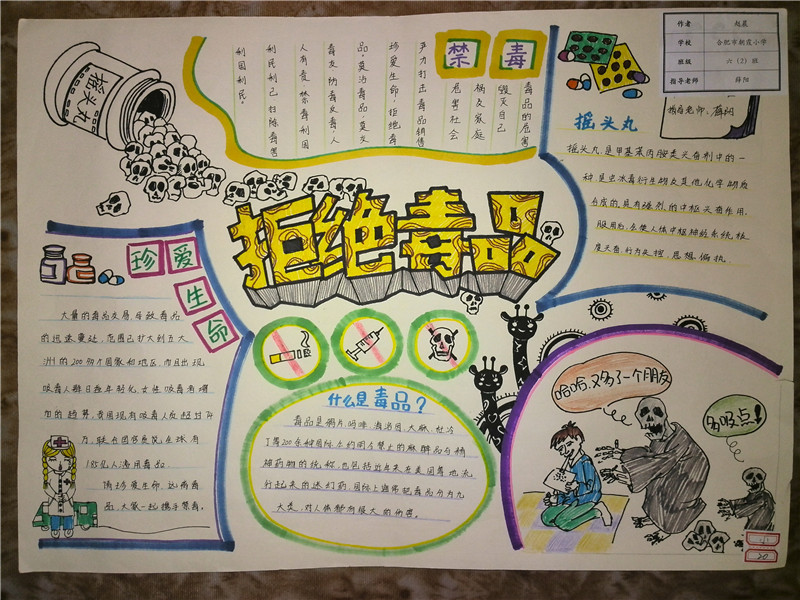 摇头丸
禁毒
毒品的危害
毁灭自己
祸及家庭
危害社会
严力打击毒品销售
珍爱生命,拒绝毒
品,莫沾毒品,莫交
毒友
人有责 禁毒利国
利民利己扫除毒害
利国利民。
作者 赵晨
学校 合肥市朝霞小学
班级 六(2)班
指导老师 薛阳
摇头丸
摇头丸是甲基苯丙胺类兴奋剂中的一
种是由冰毒衍生物及其他化学物质
合成的,具有强烈的中枢兴奋作用,
服用后,会使人体中枢神经系统极
度兴奋,行为失控,思想偏执.
拒绝毒品
珍爱生命
大量的毒品交易,导致毒品
的迅速蔓延,范围已扩大到五大
洲的200多个国家和地区,而且出现
吸毒人群日趋年轻化,女性吸毒者增
加的趋势,我国现有吸毒人员超过74
万,联合国官员说,全球有
1.85亿人滥用毒品
请珍爱生命,远离毒
品,大家一起携手禁毒。
什么是毒品?
毒品是鸦片、吗啡、海洛因、大麻、杜冷
丁等200多种国际公约明令禁止的麻醉品与精
神药物的统称,也包括近年来在美国等地流
行起来的迷幻药,国际上通常把毒品分为九
大类,对人体都有极大的伤害。
哈哈,又多了一个朋友
多吸点!
20